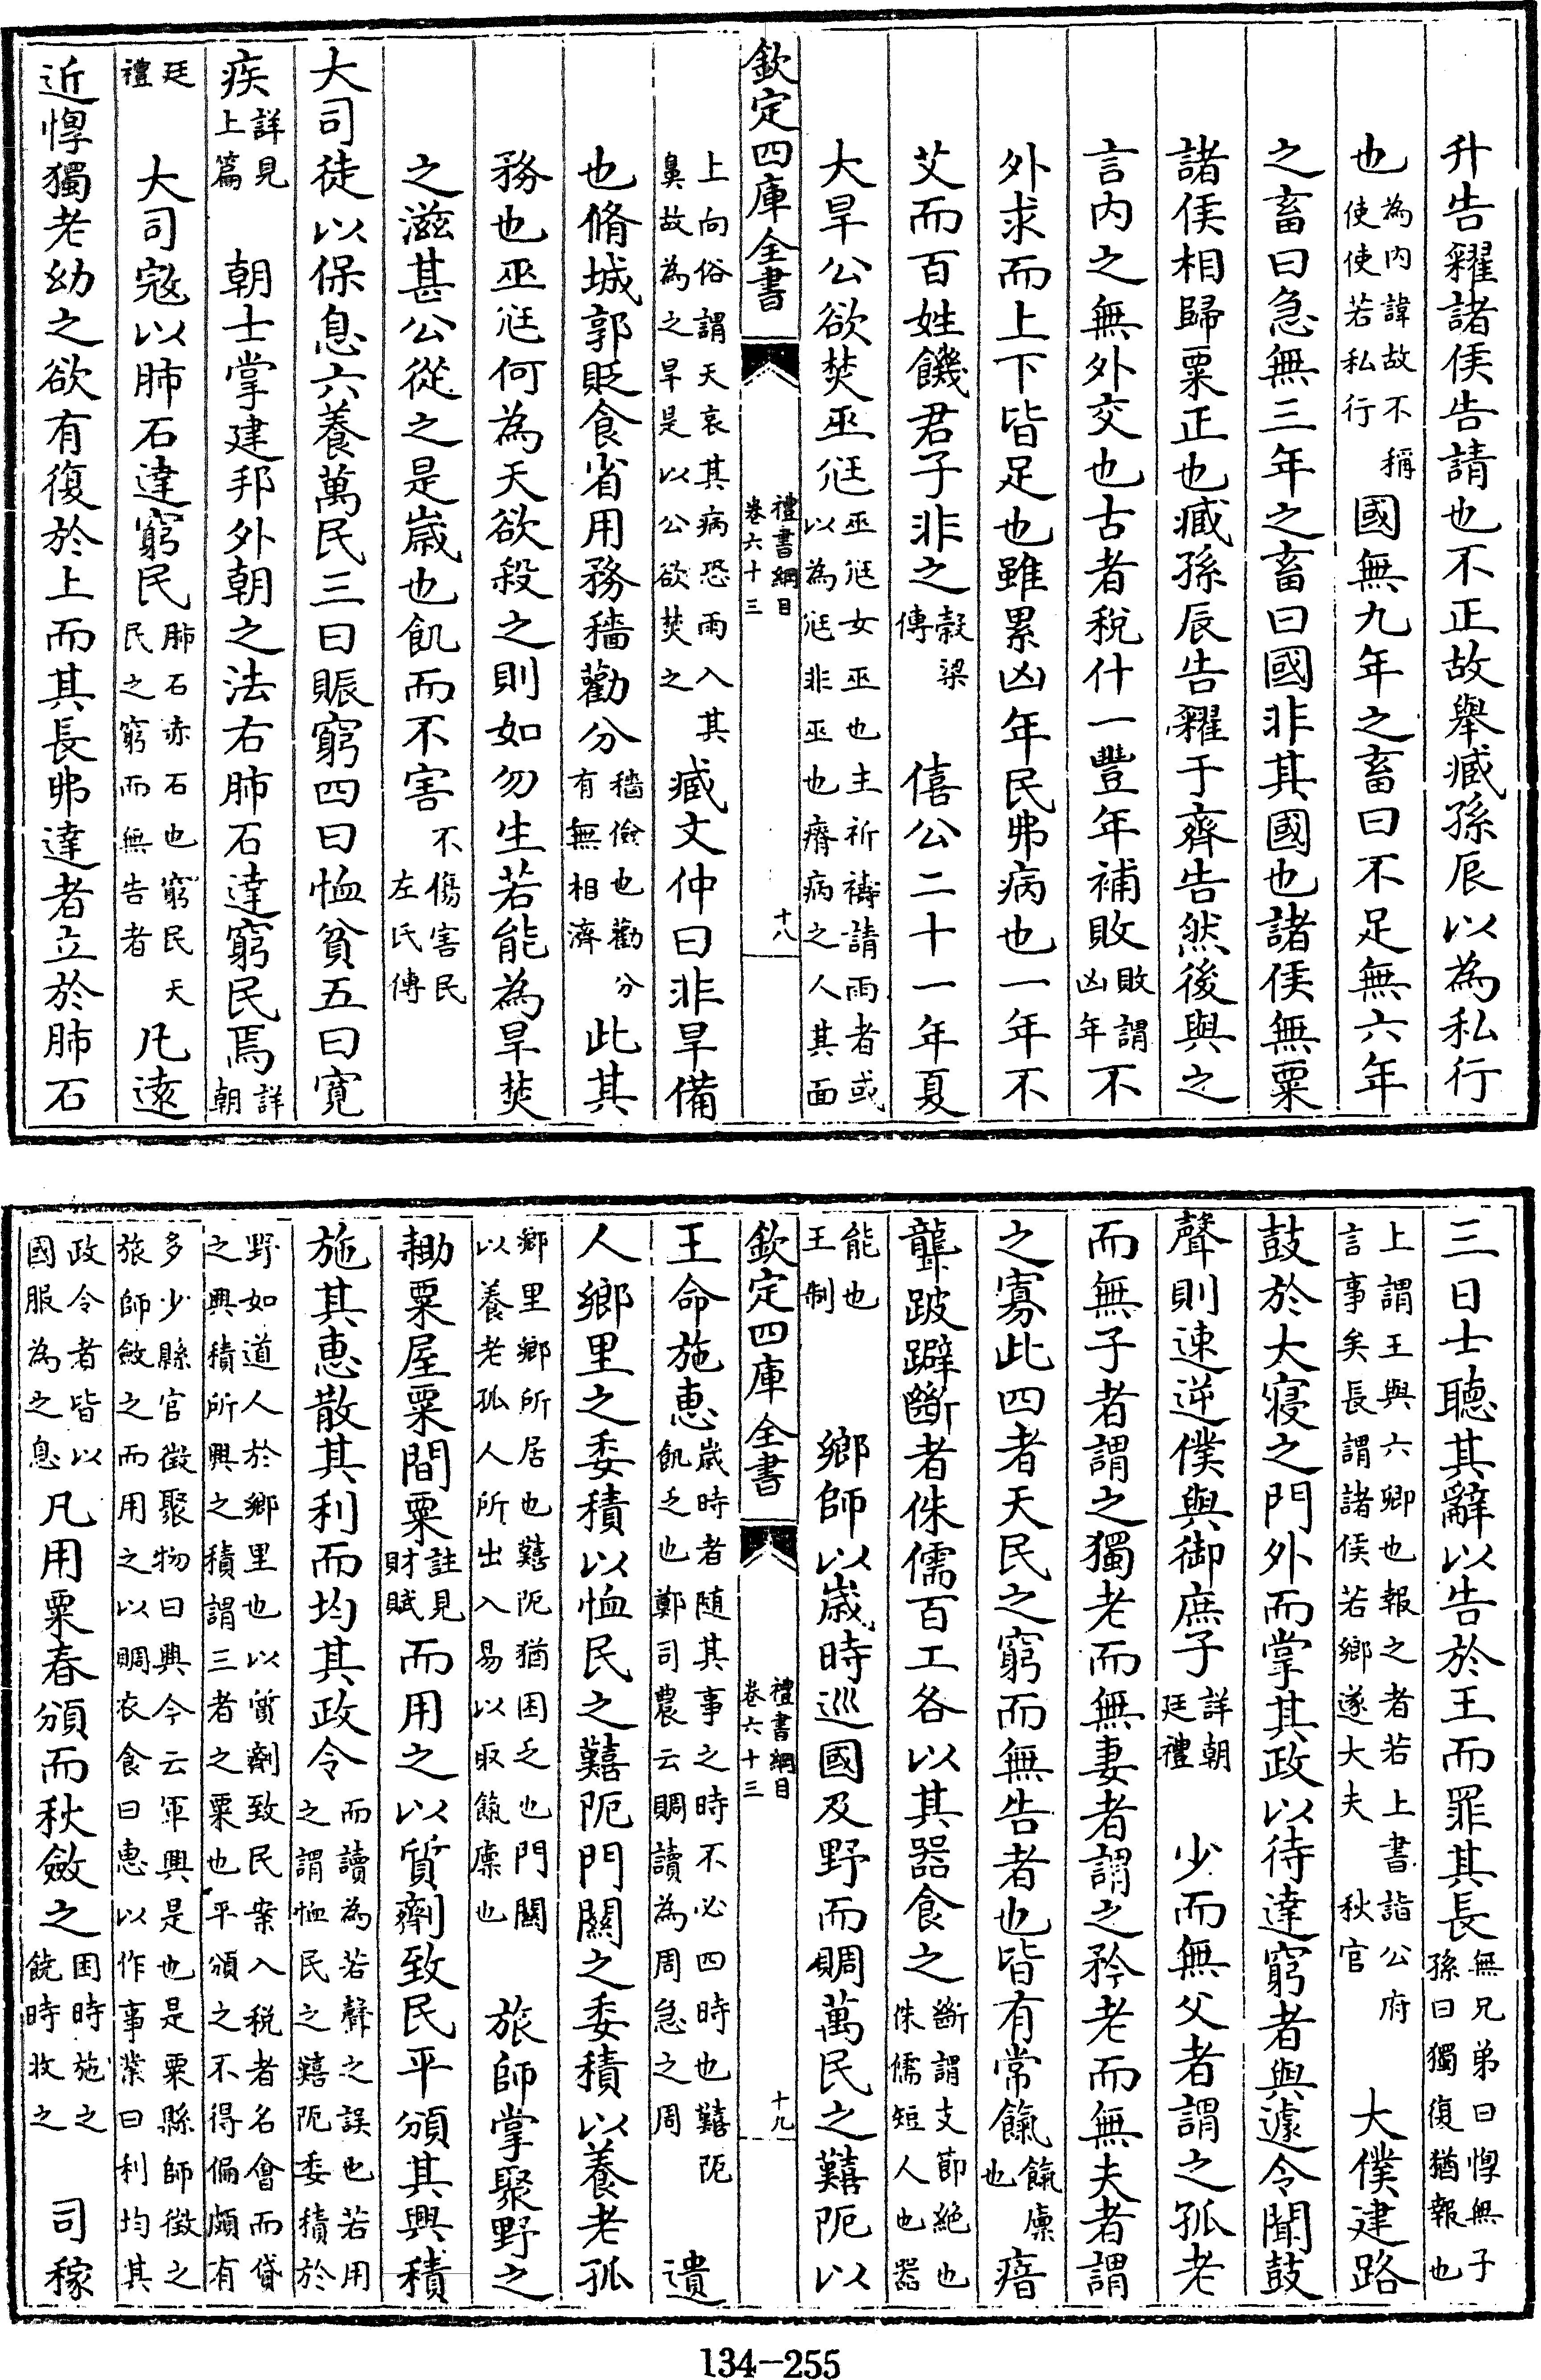 升告糴諸侯告請也不正故舉臧孫辰以為私行
也為內諱故不稱使使若私行國無九年之畜曰不足無六年
之畜曰急無三年之畜曰國非其國也諸侯無粟
諸侯相歸粟正也臧孫辰告糴于齊告然後與之
言內之無外交也古者稅什一豐年補敗敗謂凶年不
外求而上下皆足也雖累凶年民弗病也一年不
艾而百姓饑君子非之穀梁傳 僖公二十一年夏
大旱公欲焚巫尫巫尫女巫也主祈禱請雨者或以為尫非巫也瘠病之人其面
欽定四庫全書 禮書綱目卷六十三 十八
上向俗謂天哀其病恐雨入其鼻故為之旱是以公欲焚之臧文仲曰非旱備
也脩城郭貶食省用務穡勸分穡儉也勸分有無相濟此其
務也巫尫何為天欲殺之則如勿生若能為旱焚
之滋甚公從之是歲也飢而不害不傷害民左氏傳
大司徒以保息六養萬民三曰賑窮四曰恤貧五曰寬
疾詳見上篇 朝士掌建邦外朝之法右肺石達窮民焉詳朝
廷禮 大司寇以肺石達窮民肺石赤石也窮民天民之窮而無告者凡遠
近惸獨老幼之欲有復於上而其長弗達者立於肺石
三日士聽其辭以告於王而罪其長無兄弟曰惸無子孫曰獨復猶報也
上謂王與六卿也報之者若上書詣公府言事矣長謂諸侯若鄉遂大夫 秋官 大僕建路
鼓於大寢之門外而掌其政以待達窮者與遽令聞鼓
聲則速逆僕與御庶子詳朝廷禮 少而無父者謂之孤老
而無子者謂之獨老而無妻者謂之矜老而無夫者謂
之寡此四者天民之窮而無告者也皆有常餼餼廩也瘖
聾跛躃斷者侏儒百工各以其器食之斷謂支節絕也侏儒短人也器
能也王制 鄉師以歲時巡國及野而賙萬民之囏阨以
欽定四庫全書 禮書綱目卷六十三 十九
王命施惠歲時者隨其事之時不必四時也囏阨飢乏也鄭司農云賙讀為周急之周 遺
人鄉里之委積以恤民之囏阨門關之委積以養老孤
鄉里鄉所居也囏阨猶困乏也門關以養老孤人所出入易以取餼廩也 旅師掌聚野之
耡粟屋粟間粟註見財賦而用之以質劑致民平頒其興積
施其惠散其利而均其政令而讀為若聲之誤也若用之謂恤民之囏阨委積於
野如道人於鄉里也以質劑致民案入稅者名會而貸之興積所興之積謂三者之粟也平頒之不得偏頗有
多少縣官徵聚物曰興今云軍興是也是粟縣師徵之旅師斂之而用之以賙衣食曰惠以作事業曰利均其
政令者皆以國服為之息凡用粟春頒而秋斂之困時施之饒時收之 司稼
134-255